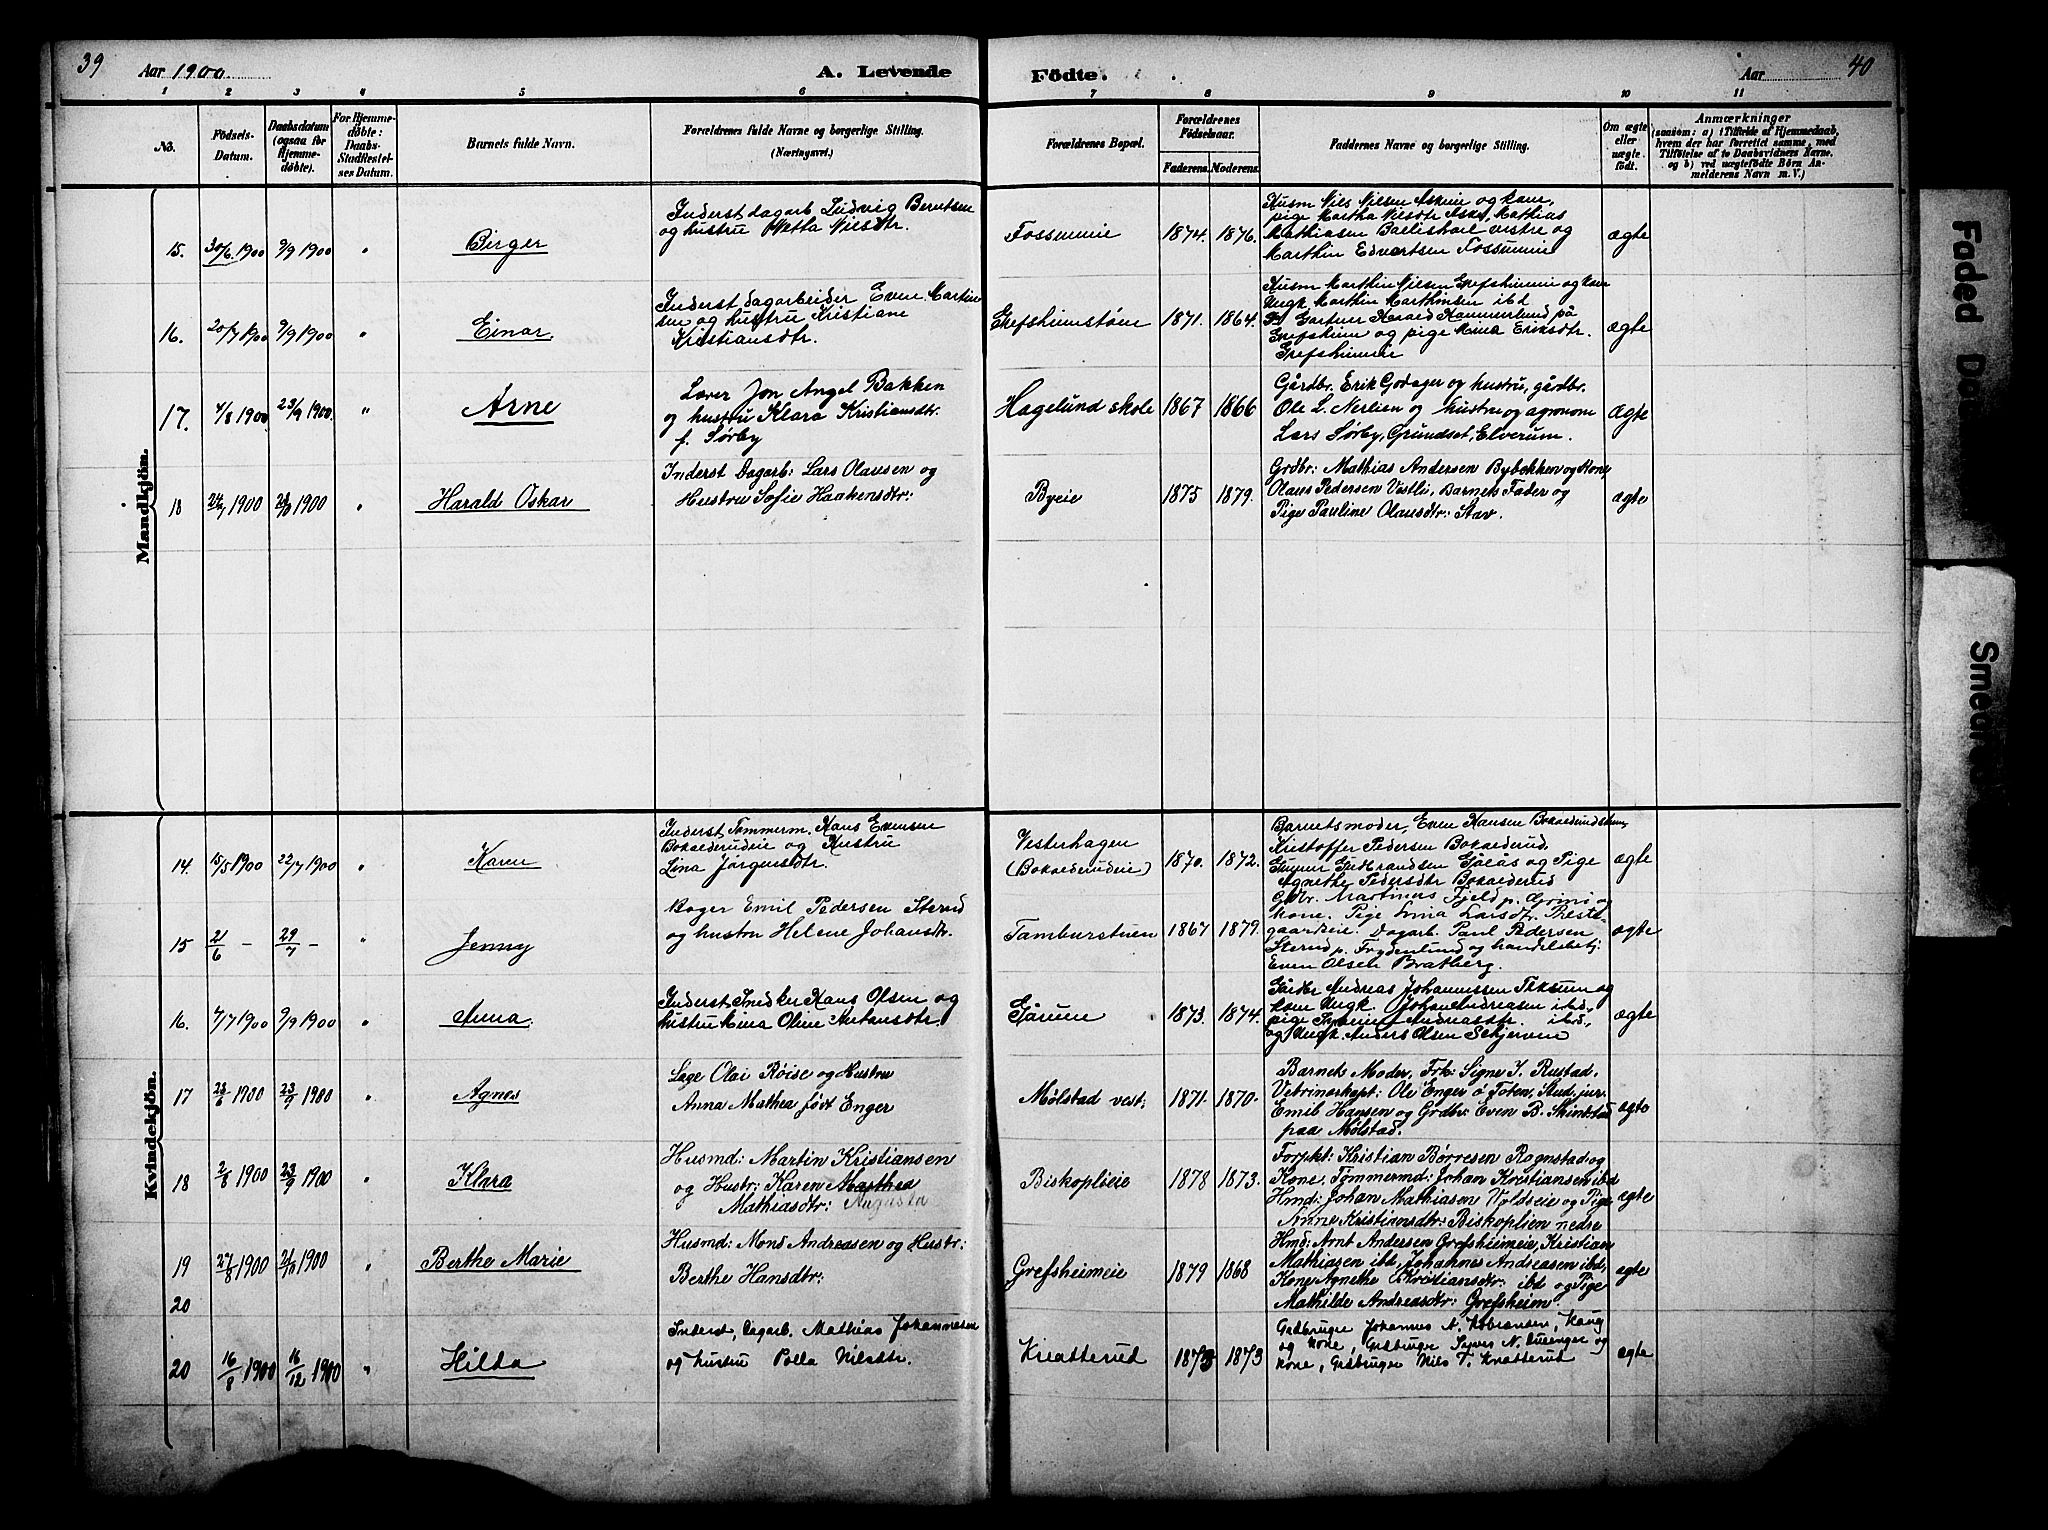 39
Aar 1900
A. Levende
Födte.
Aar
40
1 2 3 4 5 6 7 8 9 10 11
No.
Födsels-
Datum.
Daabsdatum
(ogsaa for
Hjemme-
døbte).
For Hjemme-
døbte:
Daabs-
Stadfæstel-
ses Datum.
Barnets fulde Navn.
Forældrenes fulde Navne og borgerlige Stilling.
(Næringsvei.)
Forældrenes Bopæl.
Forældrenes
Födselsaar.
Faderens. Moderens.
Faddernes Navne og borgerlige Stilling.
Om ægte
eller
uægte
födt.
Anmærkninger
(saasom: a) i Tilfælde af Hjemmedaab,
hvem der har forrettet samme, med
Tilföielse af to Daabsvidners Navne,
og b) ved uægtefödte Börn An-
melderens Navn m. V.)
Mandkjön.
15. 30/6 1900 9/9 1900 " Birger
Inderst dagarb Ludvig Berntsen
og hustru Netta Nilsdtr.
Fossumeie 1874. 1876.
Husm Nils Nilsen Askeie og kone,
pige Martha Nilsdtr Aske, Mathias
Mathiasen Baellishoel vestre og
Marthin Edvartsen Fossumeie
ægte
16. 20/7 1900 9/9 1900 " Einar.
Inderst dagarbeider Even Martin
sen og hustru Kristiane
Kristiansdtr.
Grefsheimstøen 1871. 1864.
Husm Marthin Nilsen Grefsheimeie og kone
Ungk Marthin Marthinsen ibd
Gartner Harald Hammerlund på
Grefsheim og pige Mina Eriksdtr.
Grefsheimeie
ægte
17. 4/8 1900. 23/9 1900. " Arne
Lærer Jon Angel Bakken
og hustru Klara Kristiansdtr.
f. Sørby
Hagelund skole 1867 1866
Gårdbr. Erik Godager og hustru, gårdbr.
Ole L. Nerlien og hustru og agronom
Lars Sørby, Grundset, Elverum.
ægte
18 1900 1900 " Harald Oskar
Inderst Dagarb: Lars Olausen og
Hustru Sofie Haakensdtr:
Byeie 1875 1879.
Grdbr: Mathias Andersen Bybekken og Kone,
Olaus Pedersen Vestli, Barnets Fader og
Pige Pauline Olausdtr: Stav.
ægte
Kvindekjön.
14. 15/5 1900 22/7 1900 " Karen
Inderst Tømmerm. Hans Evensen
Bokalerudeie og Hustru
Lina Jørgensdtr.
Vesterhagen
(Bokalerudeie) 1870. 1872.
Barnets moder, Even Hansen
Kristoffer Pedersen Bokalerud,
Gunnar Gudbrandsen Gålås og Pige
Agnethe Pedersdtr Bokalerud
ægte
15 21/6 - 29/7 - " Jenny
Bager Emil Pedersen Sterud
og hustru Helene Johansdtr.
Tamburstuen 1867 1879.
Gdbr. Martinius Fjeld p. og
kone. Pige Lina Larsdtr. Preste-
gaardseie. Dagarb. Paul Pedersen
Sterud p. Frydenlund og handelsbetj:
Even Olsen Bratberg.
ægte
16. 7/7 1900 9/9 1900 " Anna.
Inderst Snedker Hans Olsen og
hustru Mina Oline Antonsdtr.
Gårum 1873. 1874.
Gårdbr Andreas Johannessen Teksum og
kone Ungk. Johan Andreasen ibd.,
pige Andreasdtr. ibd.,
og Ungk. Anders Olsen Skjerven
ægte
17 23/6 1900 23/9 1900 " Agnes
Læge Olai Røise og Hustru
Anna Mathea født Enger
Mølstad vest: 1871. 1870.
Barnets Moder, Frk: Signe J. Rustad,
Vetrinærkapt: Ole Enger ø Toten, Stud. jur.
Emil Hansen og Grdbr: Even B. Skinstad
paa Mølstad.
ægte
18 2/8 1900 23/9 1900 " Klara
Husmd: Martin Kristiansen
og Hustr: Karen Marthea
Mathiasdtr: Augusta
Bisköplieie 1878 1873.
Forpkt: Kristian Børresen Rognstad og
Kone. Tømmermd: Johan Kristiansen ibd
Hmd: Johan Mathiasen Voldseie og Pige
Anne Kristiansdtr: Biskoplien nedre
ægte
19 27/8 1900 1900 " Berthe Marie
Husmd: Mons Andreasen og Hustr:
Berthe Hansdtr:
Grefsheimeie 1879 1868
Hmd: Arnt Andersen Grefsheimeie, Kristian
Mathiasen ibd, Johannes Andreasen ibd,
Kone Agnethe Kristiansdtr: ibd og Pige
Mathilde Andreasdtr: Grefsheim.
ægte
20
20 16/8 1900 16/12 1900 " Hilda
Inderst, Dagarb. Mathias Johannesen
og hustru Polla Nilsdtr.
Knatterud 1873 1873
Grdbruger Johannes A.
og kone, Grdbruger Syver N. og
kone, Grdbruger Nils T. Knatterud
ægte
Faded Do
Smear